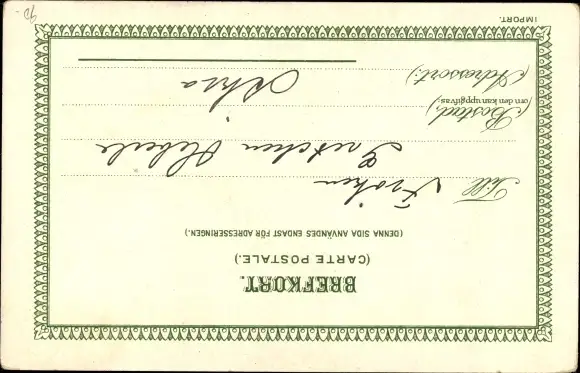 BREFKORT.
(CARTE POSTALE.)
(DENNA SIDA ANVÄNDES ENDAST FÖR ADRESSERINGEN.)
Till Fröken
Gretchen
Bostad,
(om den kan uppgifvas)
(Adressort:)
IMPORT.